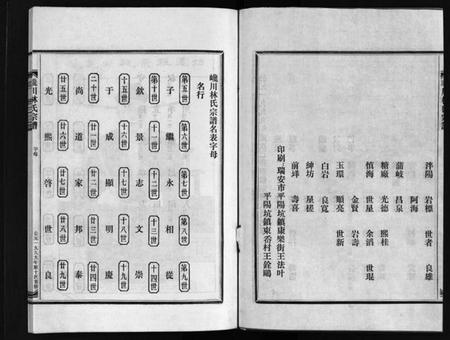 泮陽 岩標 世者 良雄
阿海
蒲岐 昌泉
糖廠 光德 熙桂
慎海 世星 余滔 世琨
金賢 岩壽
玉環 順亮 世新
白岩 良寬
紳坊 星槎
前垟 壽喜
印刷：瑞安市平陽坑鎮康樂街王法叶
平陽坑鎮東岙村王銓鷗
嶐川林氏宗譜名表字母
名行
第五世 子 第六世 繼 第七世 永 第八世 相 第九世 從
第十世 欽 十一世 景 十二世 志 十三世 文 十四世 崇
十五世 于 十六世 成 十七世 顯 十八世 明 十九世 慶
二十世 尚 廿一世 道 廿二世 家 廿三世 邦 廿四世 泰
廿五世 光 廿六世 熙 廿七世 啓 廿八世 世 廿九世 良
川林氏宗譜 字母